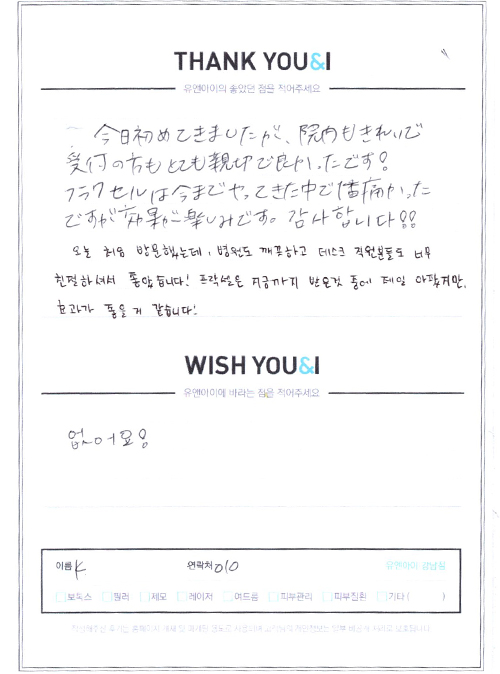 THANK YOU&I
유앤아이의 좋았던 점을 적어주세요
今日初めてきましたが、院内もきれいで
受付の方もとても親切で良かったです!
フラクセルは今までやってきた中で1番痛かった
ですが効果が楽しみです。감사합니다!!
오늘 처음 방문했는데, 병원도 깨끗하고 데스크 직원분들도 너무
친절하셔서 좋았습니다! 프락셀은 지금까지 받은것 중에 제일 아팠지만,
효과가 좋을 거 같습니다!
WISH YOU&I
유앤아이에 바라는 점을 적어주세요
없어요!
이름 K 연락처 010 유앤아이 강남점
보톡스 필러 제모 레이저 여드름 피부관리 피부질환 기타 ( )